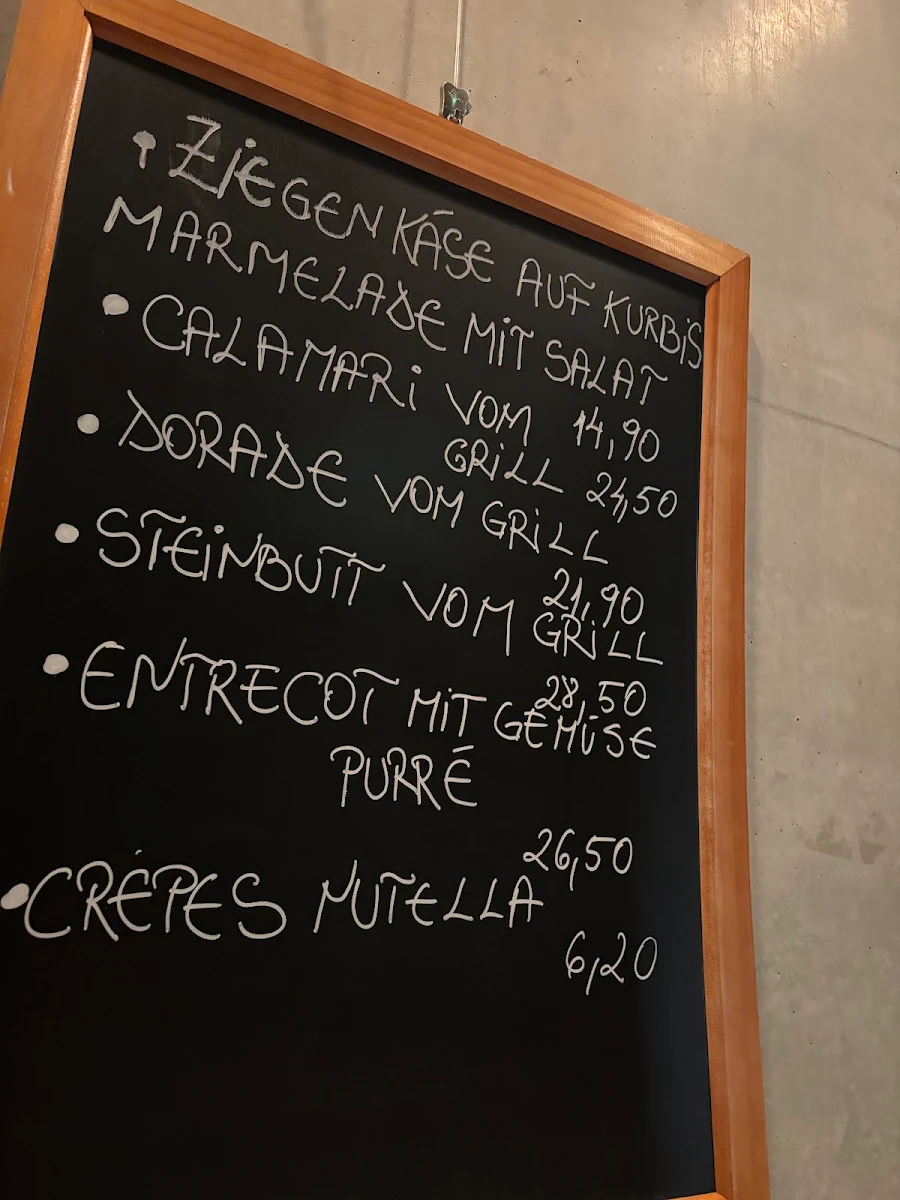 • ZIEGENKÁSE AUF KURBIS
MARMELADE MIT SALAT
14,90
• CALAMARI VOM
GRILL 24,50
• DORADE VOM GRILL
21,90
• STEINBUTT VOM GRILL
28,50
• ENTRECOT MIT GEMÜSE
PURRÉ
26,50
• CRÉPES NUTELLA
6,20